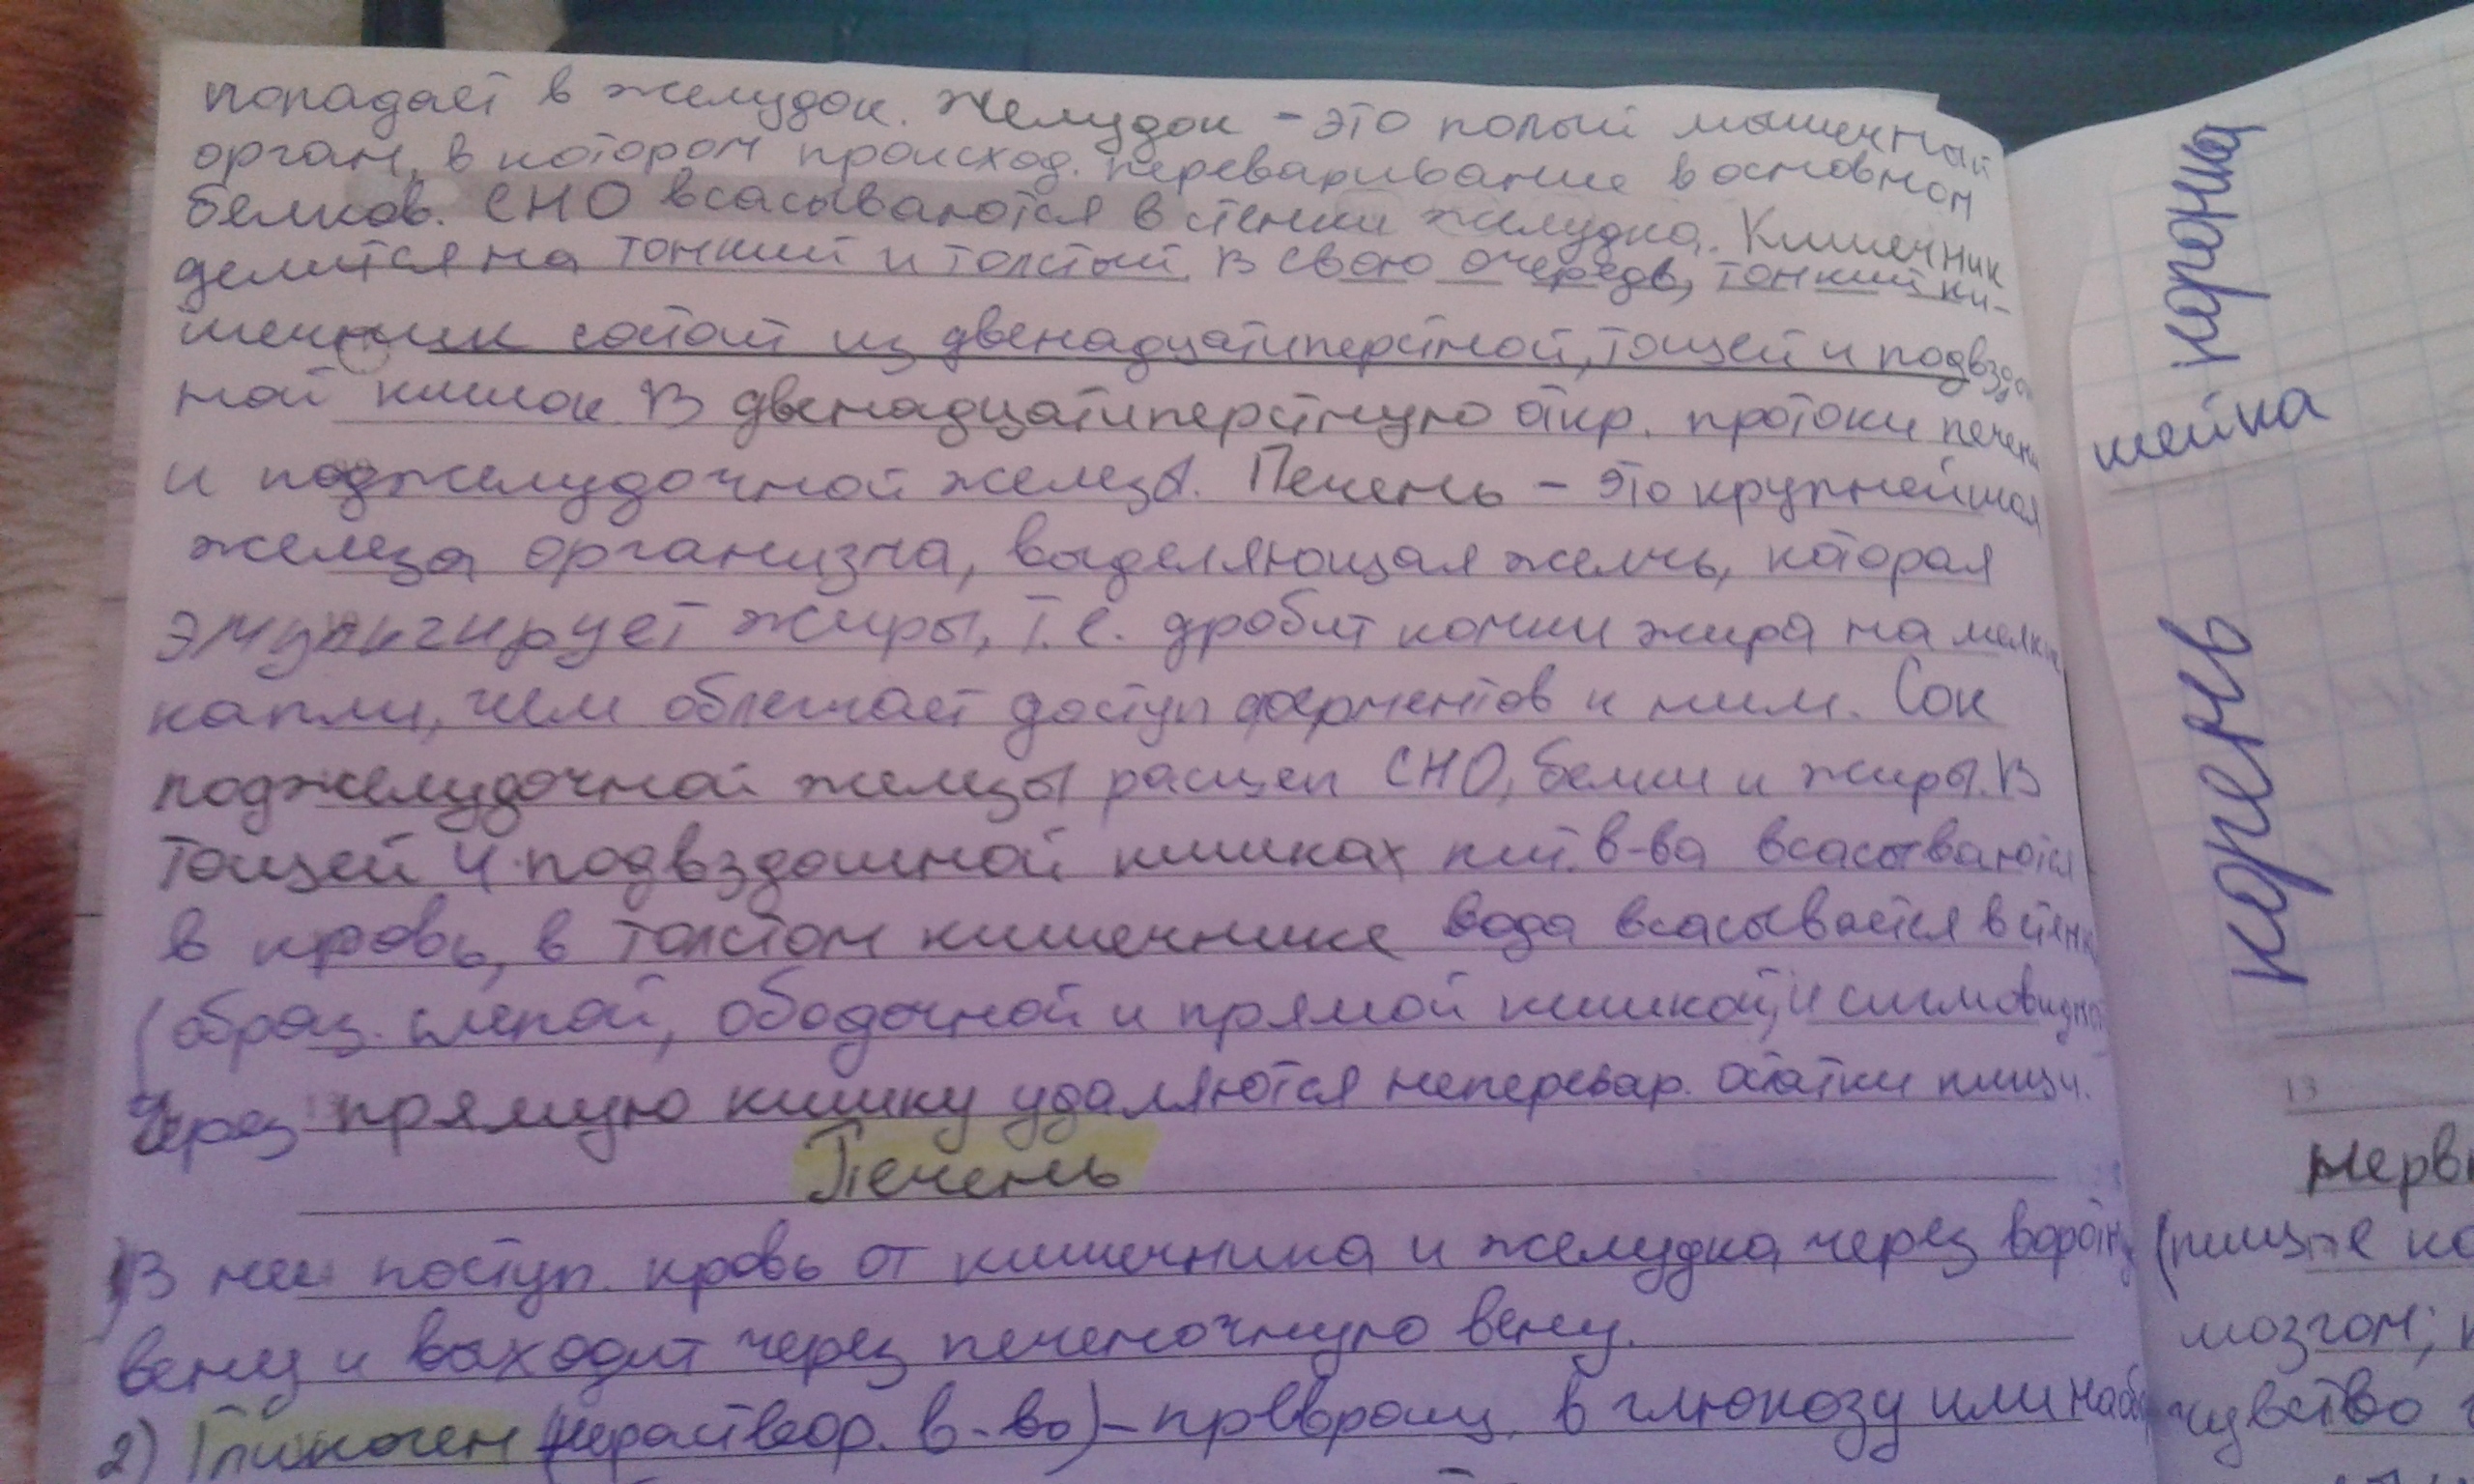 попадает в желудок. Желудок - это полый мышечный
орган, в котором происход. переваривание в основном
белков. СНО всасываются в стенки желудка. Кишечник
делится на тонкий и толстый. В свою очередь, тонкий ки-
шечник состоит из двенадцатиперстной, тощей и подвздош
ной кишок. В двенадцатиперстную откр. протоки печени
и поджелудочной железы. Печень - это крупнейшая
железа организма, выделяющая желчь, которая
эмульгирует жиры, т.е. дробит комки жира на мелкие
капли, чем облегчает доступ ферментов к ним. Сок
поджелудочной железы расщеп СНО, белки и жиры. В
тощей и подвздошной кишках пит. в-ва всасываются
в кровь, в толстом кишечнике вода всасывается в стенки
(образ. слепой, ободочной и прямой кишкой, и сигмовидной
Через прямую кишку удаляются неперевар. остатки пищи.
Печень
1) В неё поступ. кровь от кишечника и желудка через воротную
вену и выходит через печеночную вену.
2) Гликоген (нераствор. в-во) - превращ. в глюкозу или наоб
коронка
шейка
корень
13
нерв
мозгом;
чувство